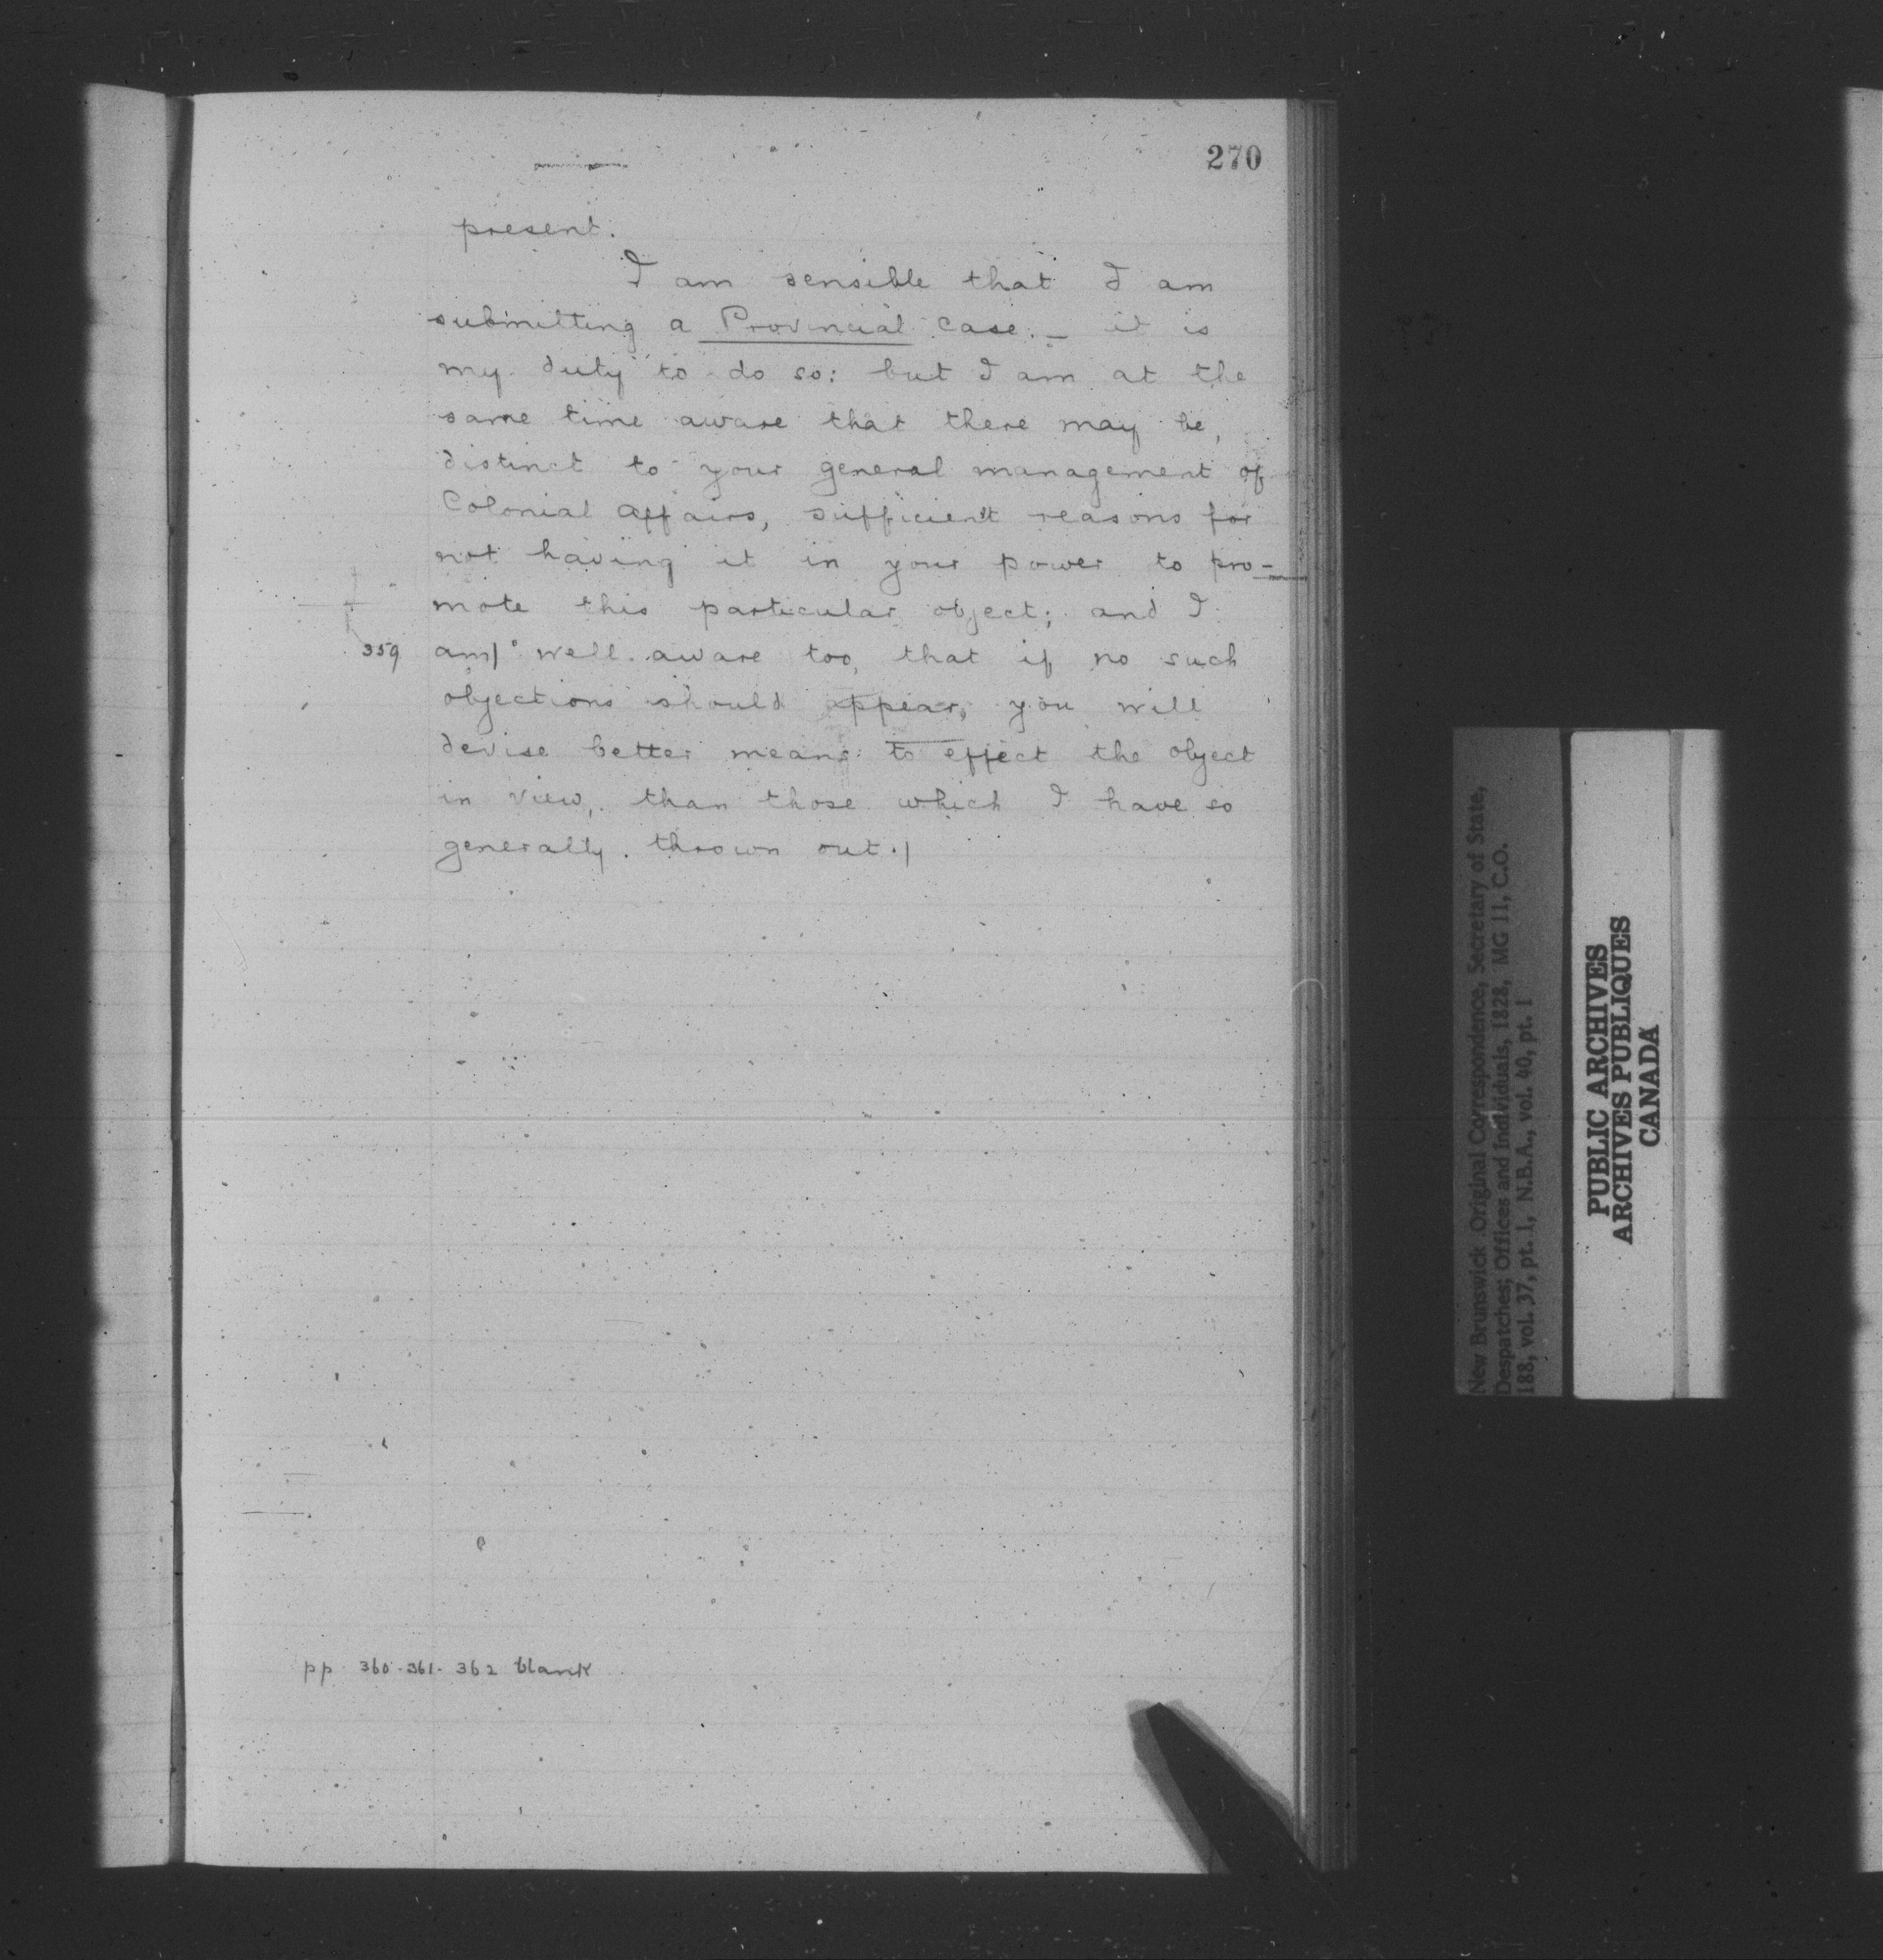 270
present.
I am sensible that I am
submitting a Provincial case. — it is
my duty to do so: but I am at the
same time aware that there may be,
distinct to your general management of
Colonial Affairs, sufficient reasons for
not having it in your power to pro-
mote this particular object; and I
359 am/ well aware too, that if no such
objections should appear, you will
devise better means to effect the object
in view, than those which I have so
generally thrown out./
pp 360-361-362 blank
New Brunswick Original Correspondence, Secretary of State,
Despatches; Offices and Individuals, 1828, MG 11, C.O.
188, vol. 37, pt. 1, N.B.A., vol. 40, pt. 1
PUBLIC ARCHIVES
ARCHIVES PUBLIQUES
CANADA